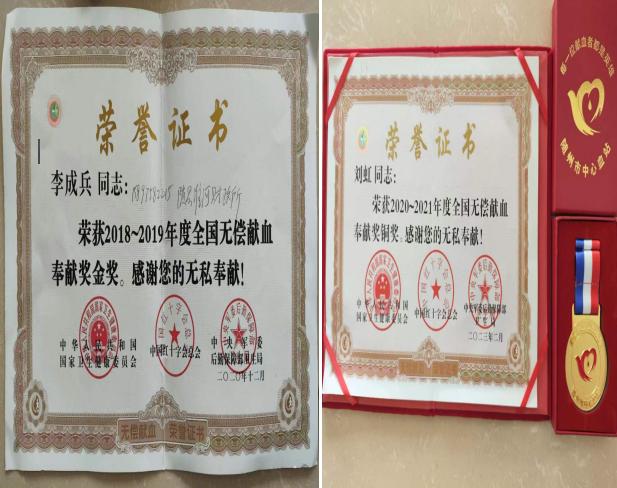 荣誉证书
李成兵 同志：
荣获2018~2019年度全国无偿献血
奉献奖金奖。感谢您的无私奉献！
中华人民共和国
国家卫生健康委员会
中国红十字会总会
中央军委
后勤保障部卫生局
二〇二〇年十二月
无偿献血 荣誉证书
荣誉证书
刘虹 同志：
荣获2020~2021年度全国无偿献血
奉献奖铜奖。感谢您的无私奉献！
中华人民共和国
国家卫生健康委员会
中国红十字会总会
中央军委后勤保障部
卫生局
二〇二三年二月
每一位献血者都是英雄
随州市中心血站